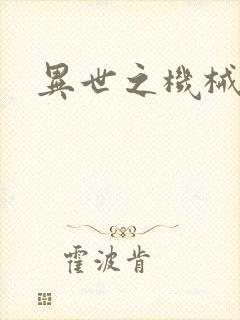 異世之機械
霍波肯